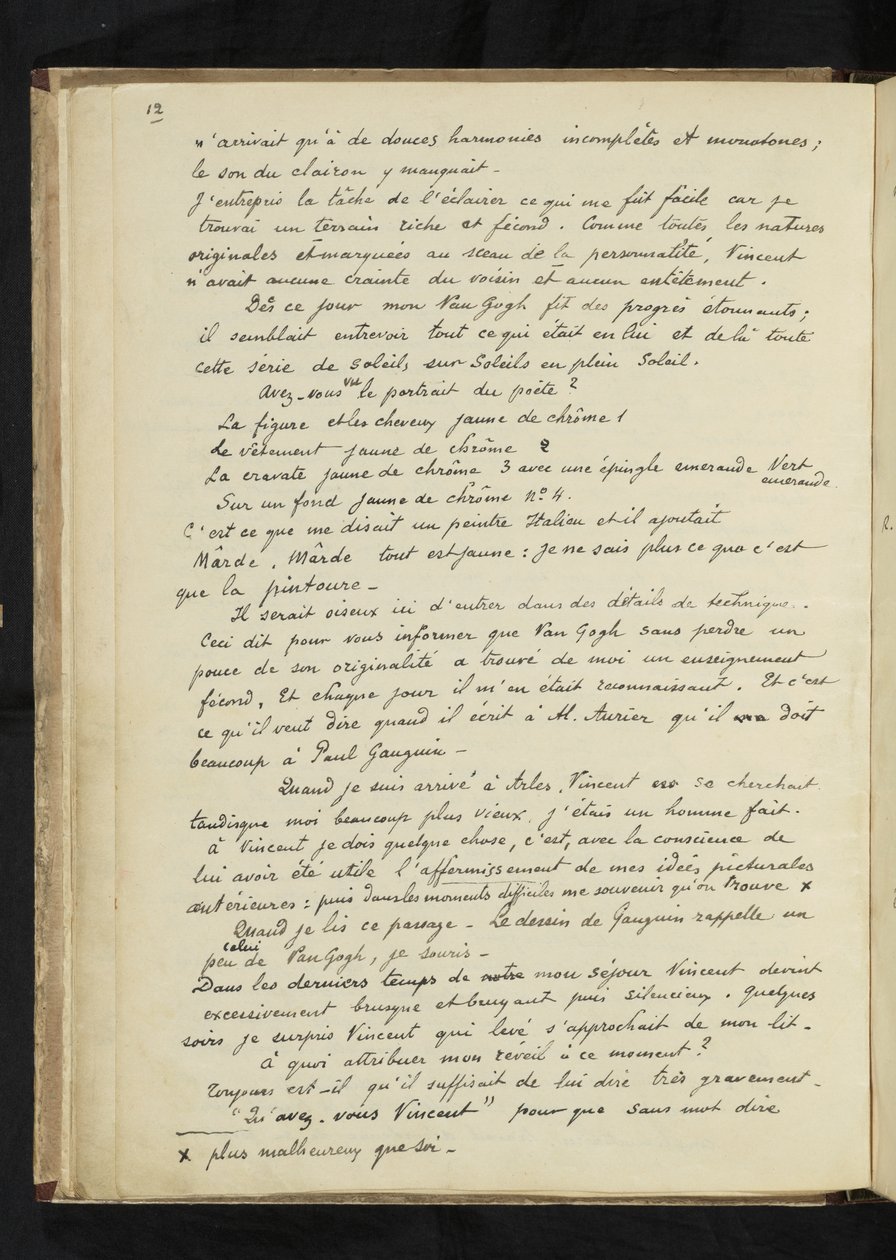 12
n'arrivait qu'à de douces harmonies incomplètes et monotones ;
le son du clairon y manquait -
J'entrepris la tâche de l'éclairer ce qui me fut facile car je
trouvai un terrain riche et fécond. Comme toutes les natures
originales et marquées au sceau de la personnalité, Vincent
n'avait aucune crainte du voisin et aucun entêtement.
Dès ce jour mon Van Gogh fit des progrès étonnants ;
il semblait entrevoir tout ce qui était en lui et de là toute
cette série de soleils sur Soleils en plein Soleil.
Avez-vous vu le portrait du poëte ?
La figure et les cheveux jaune de chrôme 1
Le vêtement jaune de chrôme 2
La cravate jaune de chrôme 3 avec une épingle emeraude Vert
emeraude.
Sur un fond jaune de chrôme No 4.
C'est ce que me disait un peintre Italien et il ajoutait
Mârde, Mârde tout est jaune : je ne sais plus ce que c'est
que la pintoure -
Il serait oiseux ici d'entrer dans des détails de technique..
Ceci dit pour vous informer que Van Gogh sans perdre un
pouce de son originalité a trouvé de moi un enseignement
fécond. Et chaque jour il m'en était reconnaissant. Et c'est
ce qu'il veut dire quand il écrit à M. Aurier qu'il doit
beaucoup à Paul Gauguin -
Quand je suis arrivé à Arles, Vincent se cherchait
tandisque moi beaucoup plus vieux, j'étais un homme fait.
à Vincent je dois quelque chose, c'est, avec la conscience de
lui avoir été utile l'affermissement de mes idées picturales
antérieures : puis dans les moments difficiles me souvenir qu'on trouve x
Quand je lis ce passage - Le dessin de Gauguin rappelle un
peu celui de Van Gogh, je souris -
Dans les derniers temps de notre mon séjour Vincent devint
excessivement brusque et bruyant puis silencieux. Quelques
soirs je surpris Vincent qui levé s'approchait de mon lit -
à quoi attribuer mon réveil à ce moment ?
Toujours est-il qu'il suffisait de lui dire très gravement -
"Qu'avez-vous Vincent" pour que sans mot dire
x plus malheureux que soi -